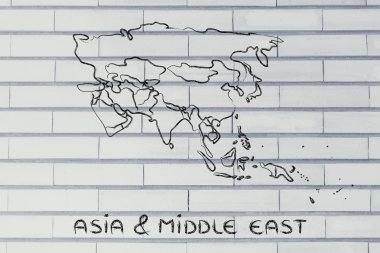 ASIA & MIDDLE EAST